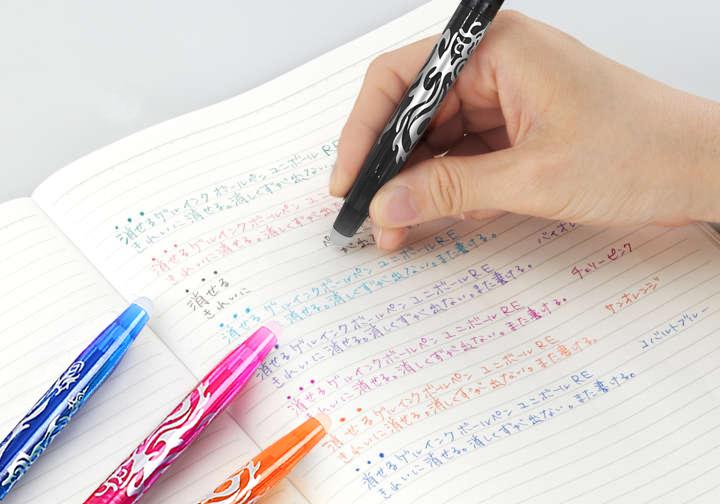 消せるゲルインクボールペン ユニボールRE
きれいに消せる。消しくずが出な
消せるゲルインクボールペン ユニボール
きれいに消せる。消しくずが出
消せる
きれいに
が出
消せるゲルインクボールペン ユニボールRE
きれいに消せる。消しくずが出ない。また書ける。
消せるゲルインクボールペン ユニボールRE
きれいに消せる。消しくずが出ない。また書ける。
バイオレ
消せるゲルインクボールペン ユニボールRE
きれいに消せる。消しくずが出ない。また書ける。
チェリーピンク
消せるゲルインクボールペン ユニボールRE
きれいに消せる。消しくずが出ない。また書ける。
サンオレンジ
消せるゲルインクボールペン ユニボールRE
きれいに消せる。消しくずが出ない。また書ける。
コバルトブルー